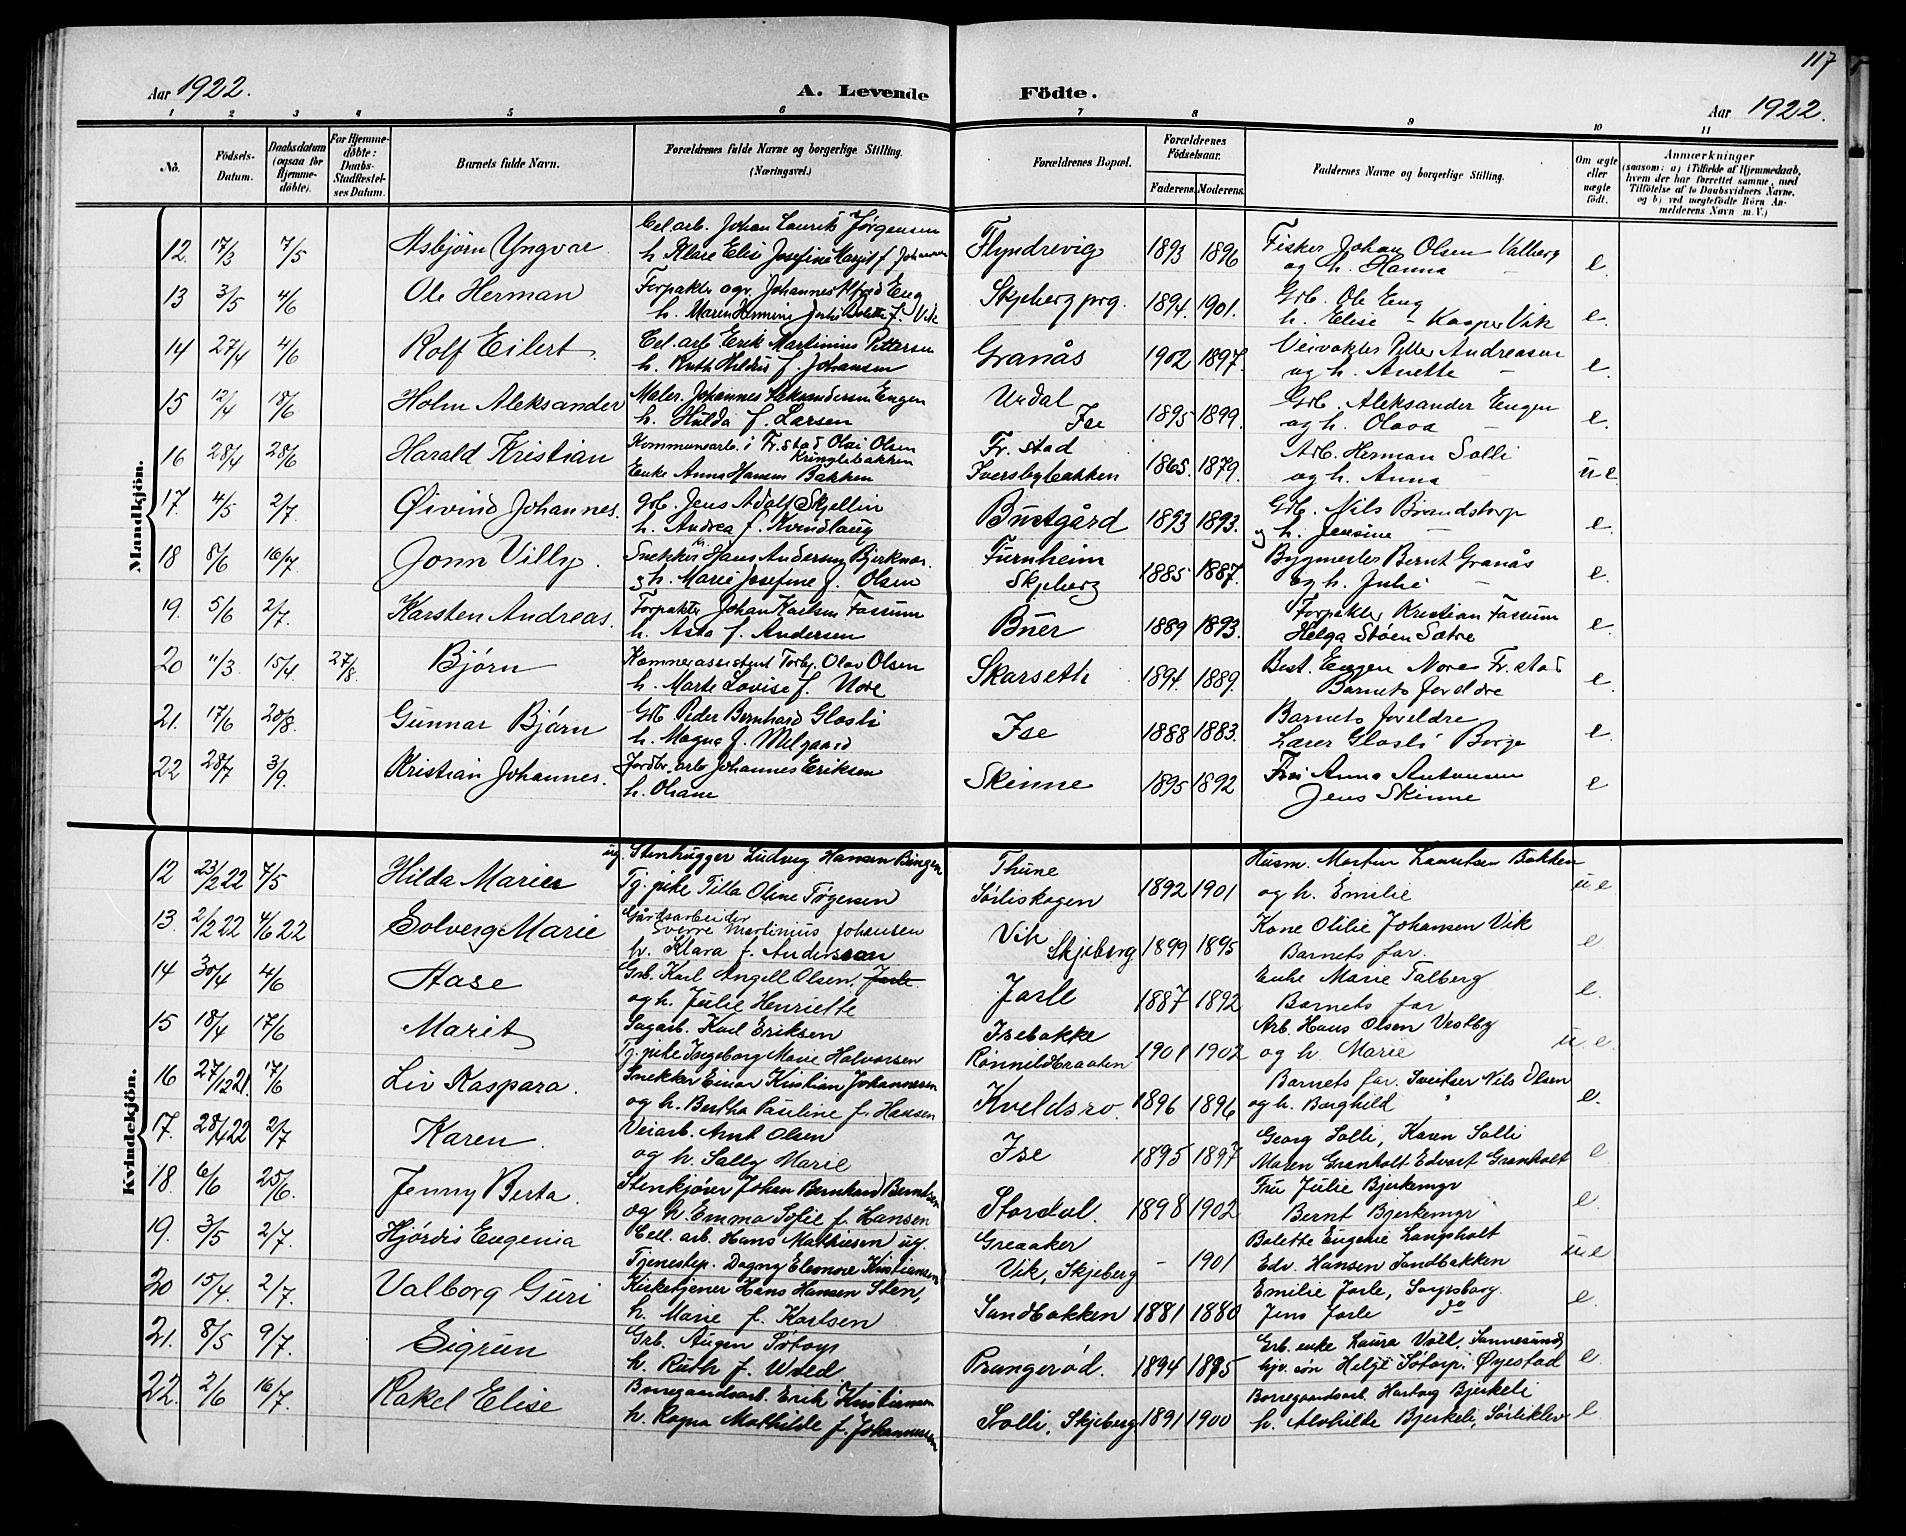 117
Aar 1922.
A. Levende Födte.
Aar 1922.
1 2 3 4 5 6 7 8 9 10 11
No.
Födsels-Datum.
Daabsdatum (ogsaa for Hjemme-döbte).
For Hjemme-döbte: Daabs-Stadfæstel-ses Datum.
Barnets fulde Navn.
Forældrenes fulde Navne og borgerlige Stilling. (Næringsvei.)
Forældrenes Bopæl.
Forældrenes Födselsaar.
Faderens. Moderens.
Faddernes Navne og borgerlige Stilling.
Om ægte eller uægte födt.
Anmærkninger
(saasom: a) i Tilfælde af Hjemmedaab, hvem der har forrettet samme, med Tilföielse af to Daabsvidners Navne, og b) ved uægtefödte Börn An-melderens Navn m. V.)
Mandkjön.
12. 17/3 7/5 Asbjørn Yngvar Cel. arb. Johan Laurits Jørgensen Flyndrevig 1893 1896 Fisker Johan Olsen Valberg e.
h. Klara Elise Josefine f. Johansen og h. Hanna –
13 3/5 4/6 Ole Herman Forpakter Johannes Eng Skjeberg prg. 1894. 1901. Grb. Ole Eng e.
h. Maren Hermine f. Vik h. Elise – Kasper Vik
14 27/4 4/6 Rolf Eilert. Cel. arb. Erik Martinius Pettersen Granås 1902 1897. Veivokter Petter Andreasen e.
h. Ruth f. Johansen og h. Anette –
15 12/4 18/6 Holm Aleksander Maler. Johannes Aleksandersen Engen Urdal 1895 1899. Grb. Aleksander Engen e.
h. Hulda f. Larsen Ise og h. Olava –
16 28/4 28/6 Harald Kristian Kommunearb. i Fr.stad Olai Olsen Kringlebakken Fr. stad 1865. 1879. Arb. Herman Solli u e.
Enke Anna Hansen Bakken Iversbybakken og h. Anna –
17 4/5 2/7. Øivind Johannes. Grb. Jens Adolf Skjellin Bustgård 1893 1893. Grb. Nils Brandstorp e
h. Andrea f. Kvindlaug og h. Jensine –
18 8/6 16/7 Jonn Villy. Snekker Hans Andersen Bjerknes. Furnheim 1885 1887. Bygmester Bernt Granås e.
og h. Marie Josefine f. Olsen Skjeberg og h. Julie –
19. 5/6 2/7. Karsten Andreas. Forpakter Johan Karlsen Fossum Buer 1889 1893. Forpakter Kristian Fossum e.
h. Asta f. Andersen Helga Støen Sætre
20 11/3. 15/4 27/8. Bjørn Olav Olsen Skarseth 1894. 1889. Best. Eugen Nore Fr. stad e.
h. Marte Lovise f. Nore Barnets foreldre
21. 17/6 20/8. Gunnar Bjørn Grb. Peder Bernhard Glosli Ise 1888 1883. Barnets foreldre e.
h. Magna f. Melgaard Lærer Glosli Borge
22 28/7 3/9. Kristian Johannes. Jordbr. arb. Johannes Eriksen Skinne 1895 1892 Frøi Anna Antonsen e
h. Oliane Jens Skinne
Kvindekjön.
12 23/2 22 7/5 Hilda Marie ug. Stenhugger Ludvig Hansen Bingen Thune 1892 1901 Husm. Martin Lauritsen Bakken u e
Tj. pike Tilla Oline Tørgersen Sørliskogen og h. Emilie
13. 2/2 22 4/6 22 Solveig Marie Gårdsarbeider Sverre Martinius Johansen Vik Skjeberg 1899 1895 Kone Otilie Johansen Vik e
h. Klara f. Anderssen Barnets far.
14 30/4 4/6 Aase Grb. Karl Angell Olsen. Jarle Jarle 1887 1892 Enke Marie Talberg e.
og h. Julie Henriette Barnets far
15 18/4 17/6 Marit Sagarb. Karl Eriksen Isebakke 1901 1902 Arb. Hans Olsen Vestby u e.
Tj. pike Ingeborg Marie Halvorsen Rønnildbraaten og h. Marie
16 27/12 21. 17/6 Liv Kaspara. Snekker Einar Kristian Johannessen Kveldsro. 1896 1896 Barnets far. Sveitser Nils Olsen e.
og h. Bertha Pauline f. Hansen og h. Borghild "
17. 28/4 22 2/7 Karen. Veiarb. Arnt Olsen Ise 1895 1897 Georg Solli, Karen Solli e
og h. Sally Marie Maren Granholt Edvart Granholt
18. 6/6 25/6. Jenny Berta. Stenkjører Johan Bernhard Berntsen Stordal. 1898 1902 Fru Julie Bjerkemyr e.
og h. Emma Sofie f. Hansen Bernt Bjerkemyr
19. 3/5 2/7. Hjørdis Eugenia Cell. arb. Hans Mathiesen ug. Greaaker – 1901 Bolette Eugenie Langsholt u e
Tjenestep. Dagny Eleonore Kristiansen Vik, Skjeberg Edv. Hansen Sandbakken
20 15/4. 2/7. Valborg Guri Kirketjener Hans Hansen Sten, Sandbakken 1881 1880 Emilie Jarle, Sarpsborg. e.
h. Marie f. Karlsen Jens Jarle do
21. 8/5 9/7. Sigrun Grb. Augen Søtorp Prangerød. 1894 1895 Grb. enke Laura Voll, Sannesund, e.
h. Ruth f. Wded. hjv. søn Helge Søtorp, Øyestad
22. 2/6 16/7. Rakel Elise Borregaardsarb. Erik Kristiansen Solli, Skjeberg 1891 1900 Borregaardsarb. Hartvig Bjerkeli e
h. Ragna Mathilde f. Johannessen h. Alvhilde Bjerkeli, Sørliklev